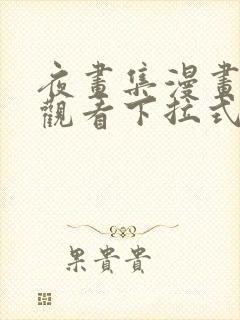 夜畫集漫畫
觀看下拉式
果貴貴